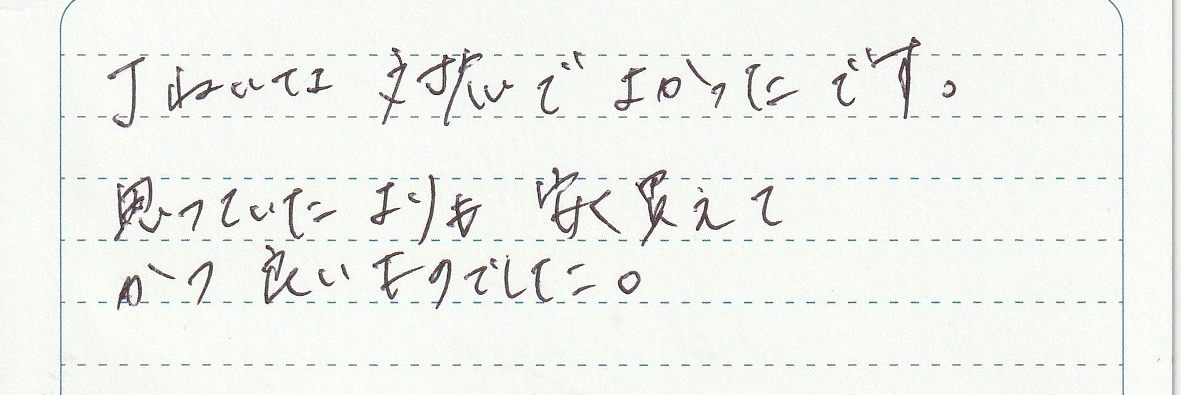 丁ねいな対払いでよかったです。
思っていたよりも安く買えて
かつ良いものでした。